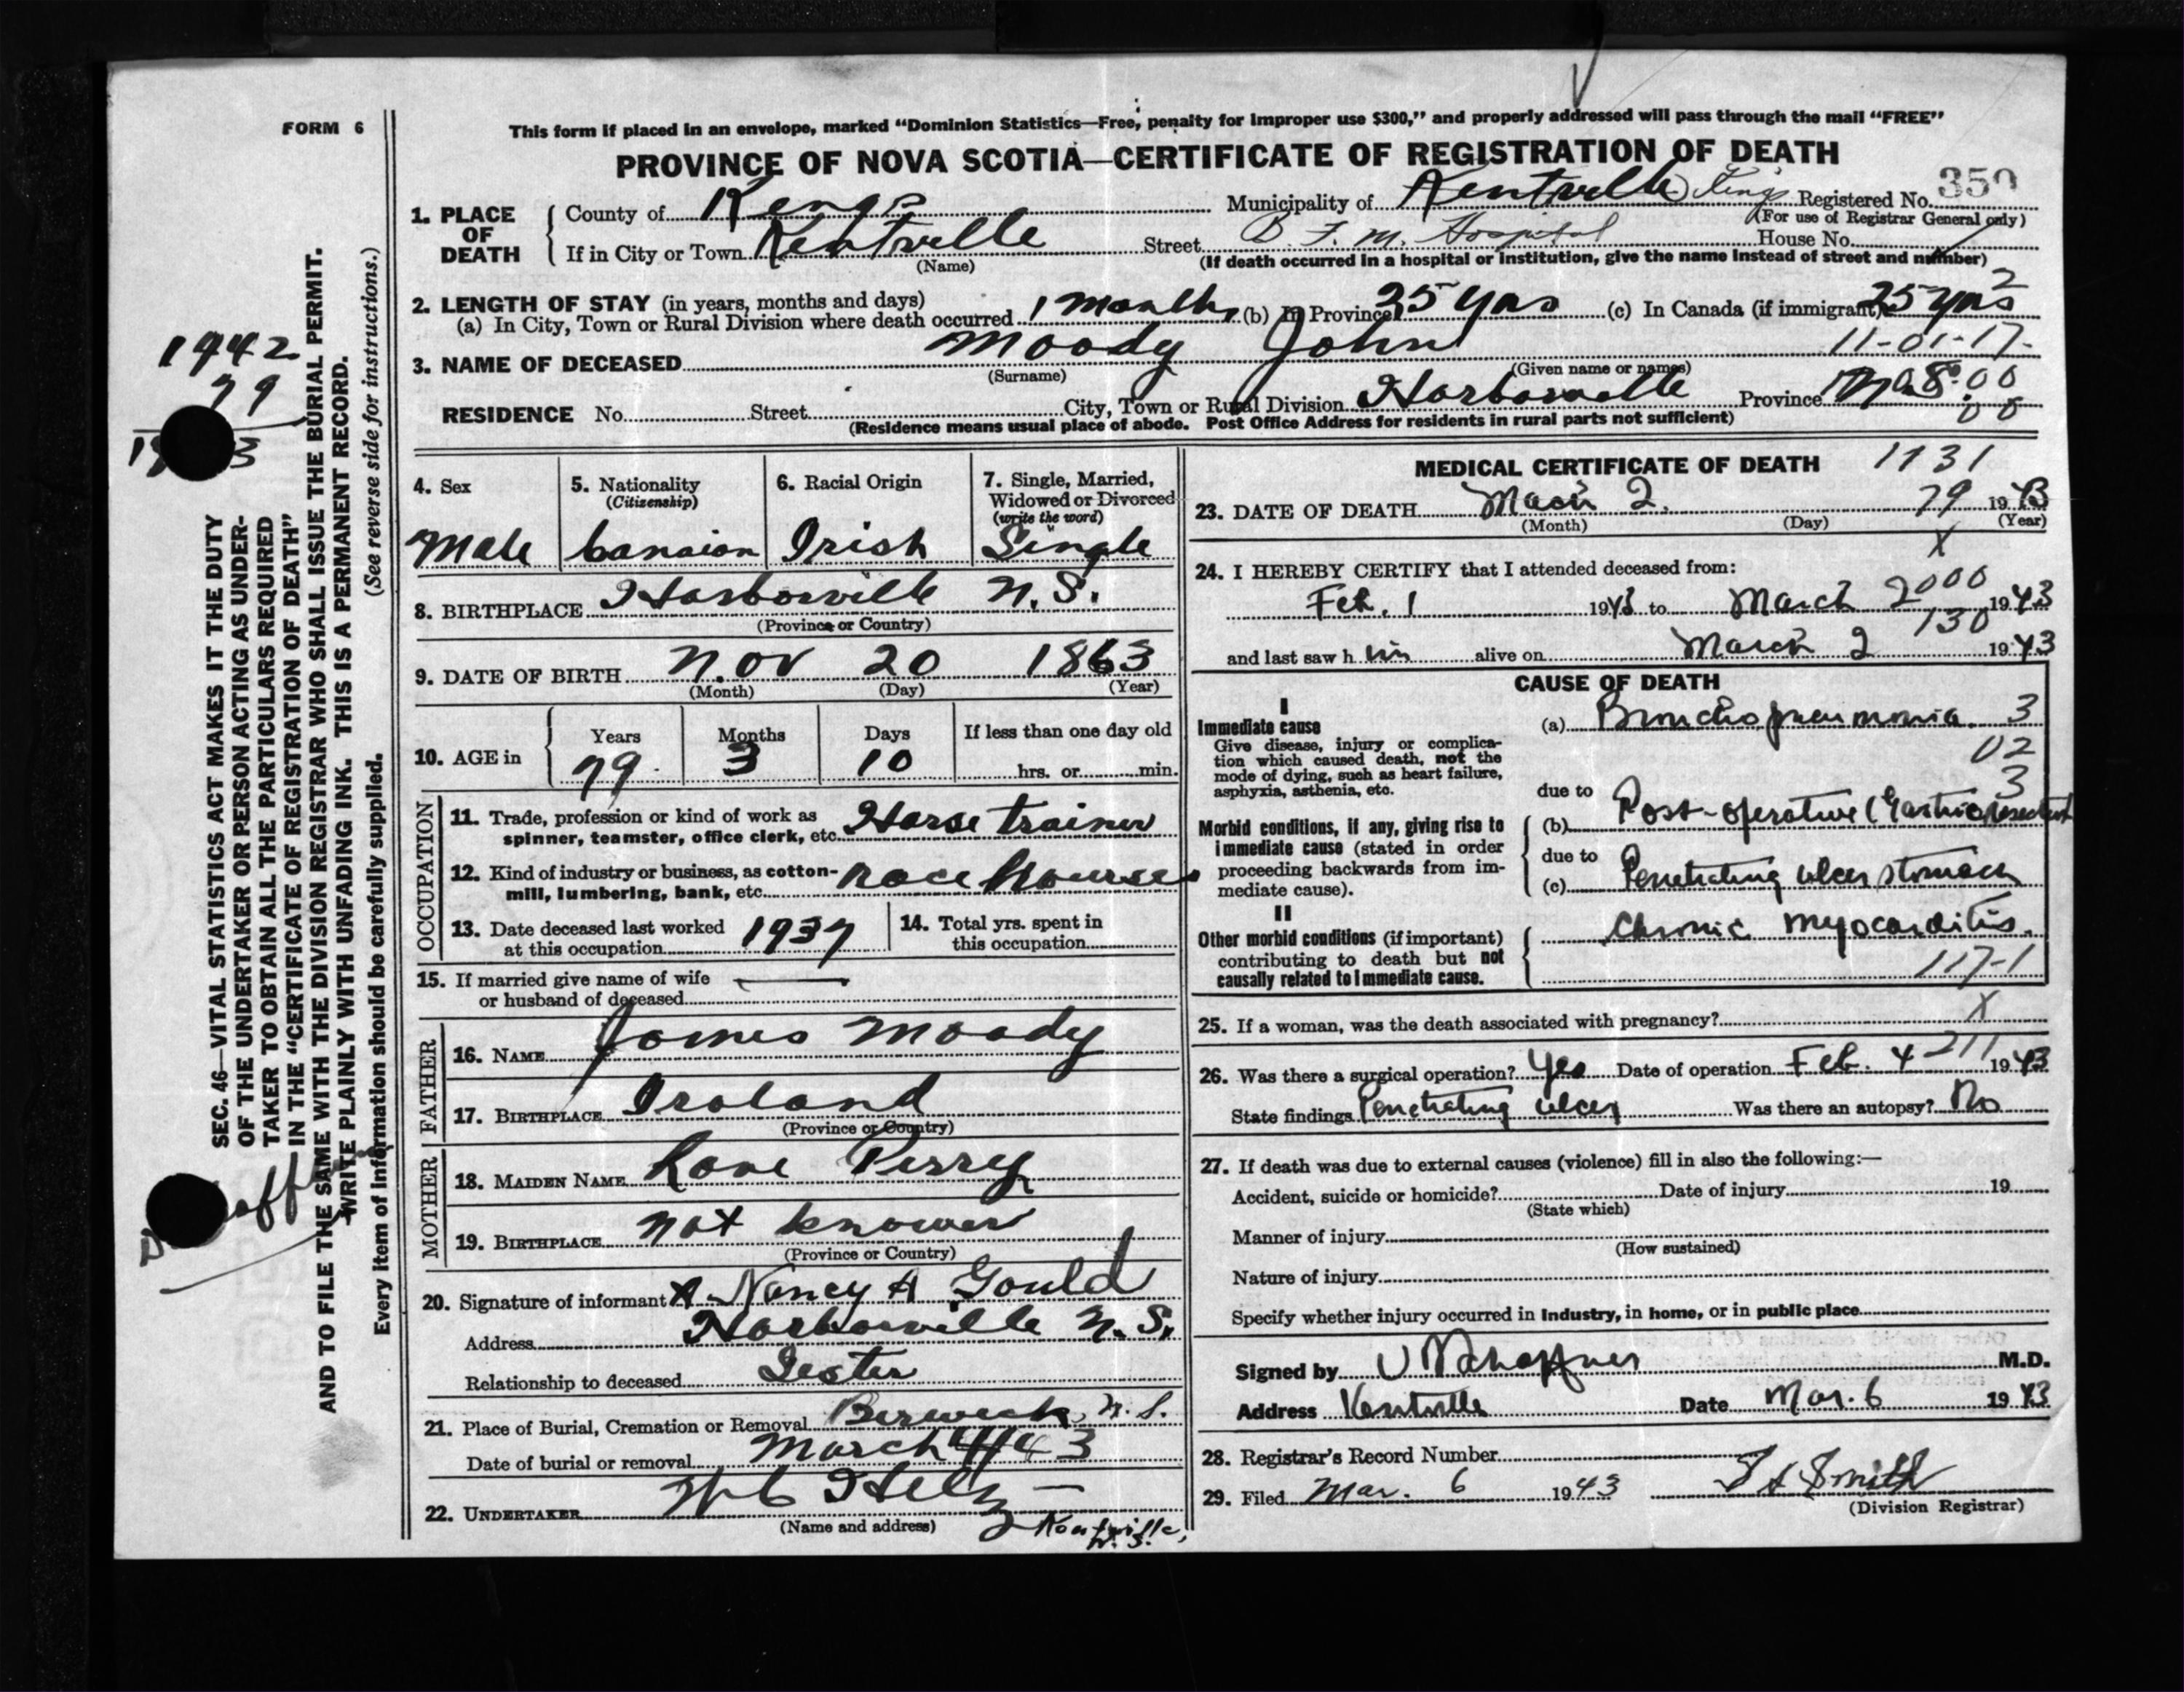 FORM 6
This form if placed in an envelope, marked “Dominion Statistics—Free, penalty for improper use $300,” and properly addressed will pass through the mail “FREE”
PROVINCE OF NOVA SCOTIA—CERTIFICATE OF REGISTRATION OF DEATH
1. PLACE OF DEATH County of Kings Municipality of Kentville Kings Registered No. 350
(For use of Registrar General only)
If in City or Town Kentville Street B. F. M. Hospital House No.
(Name) (If death occurred in a hospital or institution, give the name instead of street and number)
2. LENGTH OF STAY (in years, months and days)
(a) In City, Town or Rural Division where death occurred 1 month (b) In Province 25 yrs (c) In Canada (if immigrant) 25 yrs 2
3. NAME OF DECEASED Moody John 11-01-17-
(Surname) (Given name or names)
RESIDENCE No. Street City, Town or Rural Division Harborville Province N.S. 00
00
(Residence means usual place of abode. Post Office Address for residents in rural parts not sufficient)
4. Sex 5. Nationality (Citizenship) 6. Racial Origin 7. Single, Married, Widowed or Divorced (write the word)
Male Canaion Irish Single
8. BIRTHPLACE Harborville N.S.
(Province or Country)
9. DATE OF BIRTH Nov 20 1863
(Month) (Day) (Year)
10. AGE in Years Months Days If less than one day old
79 3 10 hrs. or min.
OCCUPATION
11. Trade, profession or kind of work as spinner, teamster, office clerk, etc. Horse trainer
12. Kind of industry or business, as cotton-mill, lumbering, bank, etc. race hourses
13. Date deceased last worked at this occupation 1937 14. Total yrs. spent in this occupation
15. If married give name of wife or husband of deceased
FATHER
16. NAME James Moody
17. BIRTHPLACE Iroland
(Province or Country)
MOTHER
18. MAIDEN NAME Perry
19. BIRTHPLACE notknowen
(Province or Country)
20. Signature of informant x Nancy A Gould
Address Harborville N.S.
Relationship to deceased Sester
21. Place of Burial, Cremation or Removal Berwick, N.S.
Date of burial or removal March 4/43
22. UNDERTAKER W C
(Name and address) Kentville, N.S.
MEDICAL CERTIFICATE OF DEATH 1131
23. DATE OF DEATH March 2. 79 1943
(Month) (Day) (Year)
X
24. I HEREBY CERTIFY that I attended deceased from:
Feb. 1 1943 to March 2 000 1943
130
and last saw h im alive on March 2 1943
CAUSE OF DEATH
I
Immediate cause (a) Bronchopneumonia 3
Give disease, injury or complication which caused death, not the mode of dying, such as heart failure, asphyxia, asthenia, etc. 02
3
due to
(b) Post-operative (Gastric resection
Morbid conditions, if any, giving rise to immediate cause (stated in order proceeding backwards from immediate cause).
due to
(c) Penetrating ulcer stomach
II
Other morbid conditions (if important) contributing to death but not causally related to immediate cause. Chronic myocarditis.
117-1
25. If a woman, was the death associated with pregnancy? X
26. Was there a surgical operation? Yes Date of operation Feb. 4 211 1943
State findings Penetrating ulcer Was there an autopsy? No
27. If death was due to external causes (violence) fill in also the following:—
Accident, suicide or homicide? Date of injury 19
(State which)
Manner of injury
(How sustained)
Nature of injury
Specify whether injury occurred in industry, in home, or in public place
Signed by V Schaffner M.D.
Address Kentville Date Mar. 6 1943
28. Registrar's Record Number
29. Filed Mar. 6 1943 Smith
(Division Registrar)
1942
79
SEC. 46—VITAL STATISTICS ACT MAKES IT THE DUTY
OF THE UNDERTAKER OR PERSON ACTING AS UNDER-
TAKER TO OBTAIN ALL THE PARTICULARS REQUIRED
IN THE “CERTIFICATE OF REGISTRATION OF DEATH”
AND TO FILE THE SAME WITH THE DIVISION REGISTRAR WHO SHALL ISSUE THE BURIAL PERMIT.
WRITE PLAINLY WITH UNFADING INK. THIS IS A PERMANENT RECORD.
Every item of information should be carefully supplied. (See reverse side for instructions.)